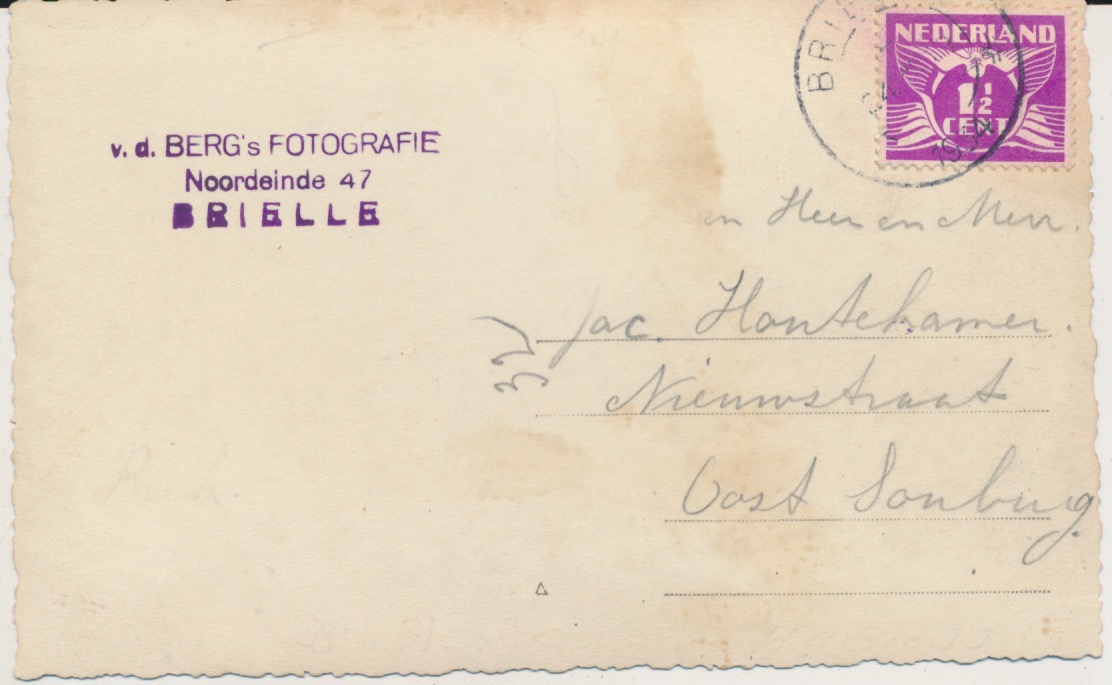 v. d. BERG's FOTOGRAFIE
Noordeinde 47
BRIELLE
BRIE
1934
NEDERLAND
1½
CENT
en Heer en Mevr.
Jac. Houtekamer.
Nieuwstraat
Oost Souburg